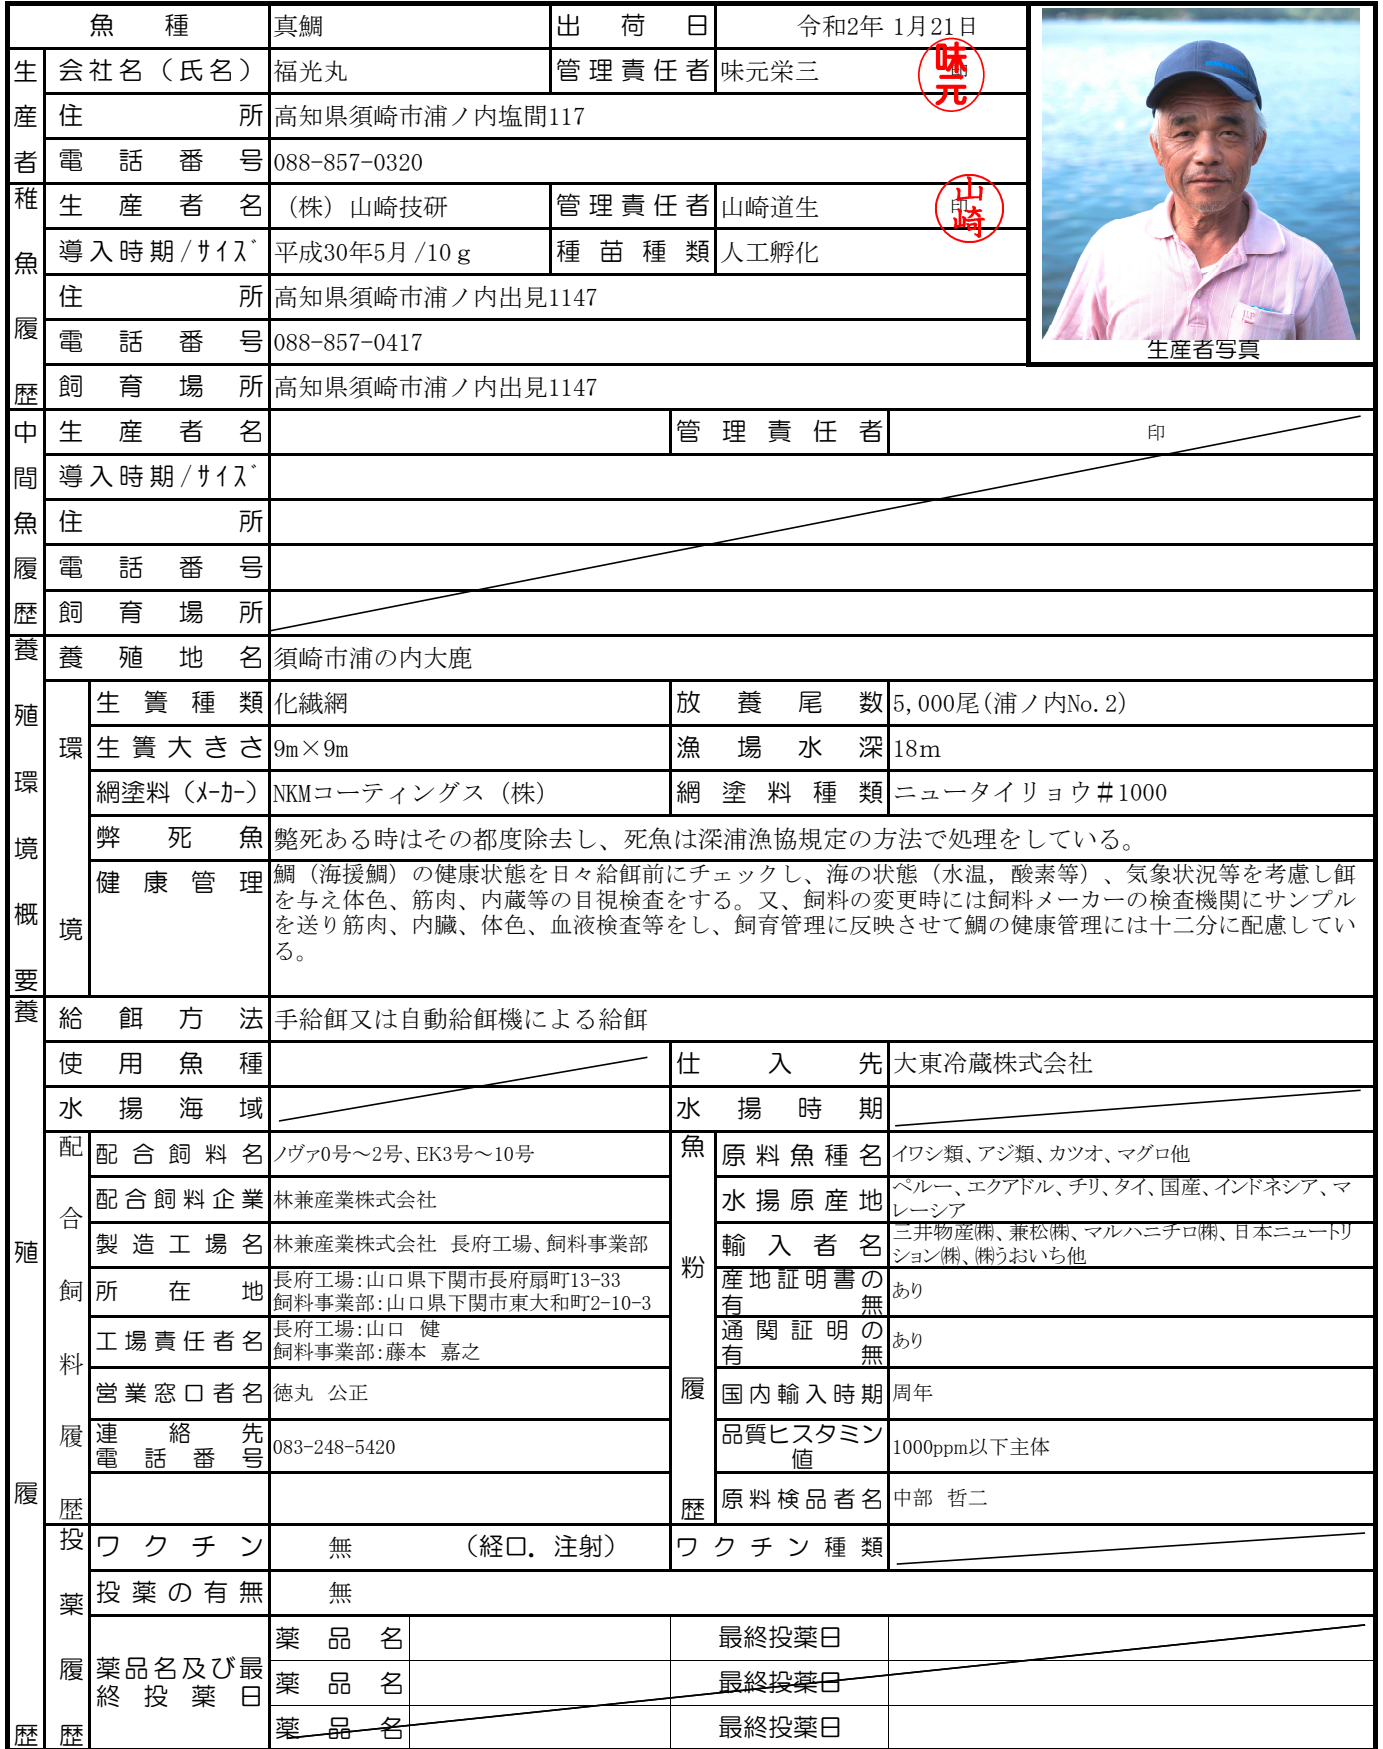 魚種 真鯛 出荷日 令和2年 1月21日
生産者
会社名（氏名） 福光丸 管理責任者 味元栄三 印 味元
住所 高知県須崎市浦ノ内塩間117
電話番号 088-857-0320
稚魚履歴
生産者名 （株）山崎技研 管理責任者 山崎道生 印 山崎
導入時期/ｻｲｽﾞ 平成30年5月/10ｇ 種苗種類 人工孵化
住所 高知県須崎市浦ノ内出見1147
電話番号 088-857-0417
JLP
生産者写真
飼育場所 高知県須崎市浦ノ内出見1147
中間魚履歴
生産者名 管理責任者 印
導入時期/ｻｲｽﾞ
住所
電話番号
飼育場所
養殖環境概要
養殖地名 須崎市浦の内大鹿
環境
生簀種類 化繊網 放養尾数 5,000尾(浦ノ内No.2)
生簀大きさ 9m×9m 漁場水深 18m
網塗料（ﾒｰｶｰ） NKMコーティングス（株） 網塗料種類 ニュータイリョウ＃1000
弊死魚 斃死ある時はその都度除去し、死魚は深浦漁協規定の方法で処理をしている。
健康管理 鯛（海援鯛）の健康状態を日々給餌前にチェックし、海の状態（水温，酸素等）、気象状況等を考慮し餌
を与え体色、筋肉、内蔵等の目視検査をする。又、飼料の変更時には飼料メーカーの検査機関にサンプル
を送り筋肉、内臓、体色、血液検査等をし、飼育管理に反映させて鯛の健康管理には十二分に配慮してい
る。
養殖履歴
給餌方法 手給餌又は自動給餌機による給餌
使用魚種 仕入先 大東冷蔵株式会社
水揚海域 水揚時期
配合飼料履歴
配合飼料名 ノヴァ0号～2号、EK3号～10号
配合飼料企業 林兼産業株式会社
製造工場名 林兼産業株式会社 長府工場、飼料事業部
所在地 長府工場：山口県下関市長府扇町13-33
飼料事業部：山口県下関市東大和町2-10-3
工場責任者名 長府工場：山口 健
飼料事業部：藤本 嘉之
営業窓口者名 徳丸 公正
連絡先
電話番号 083-248-5420
魚粉履歴
原料魚種名 イワシ類、アジ類、カツオ、マグロ他
水揚原産地 ペルー、エクアドル、チリ、タイ、国産、インドネシア、マ
レーシア
輸入者名 三井物産㈱、兼松㈱、マルハニチロ㈱、日本ニュートリ
ション㈱、㈱うおいち他
産地証明書の
有無 あり
通関証明の
有無 あり
国内輸入時期 周年
品質ヒスタミン
値 1000ppm以下主体
原料検品者名 中部 哲二
投薬履歴
ワクチン 無 （経口．注射） ワクチン種類
投薬の有無 無
薬品名及び最
終投薬日
薬品名 最終投薬日
薬品名 最終投薬日
薬品名 最終投薬日